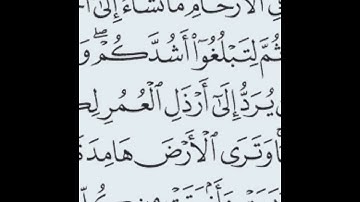 ٱلْأَرْحَامِ مَا نَشَآءُ إِلَىٰٓ
ثُمَّ لِتَبْلُغُوٓا۟ أَشُدَّكُمْ ۖ وَ
يُرَدُّ إِلَىٰٓ أَرْذَلِ ٱلْعُمُرِ لِكَ
وَتَرَى ٱلْأَرْضَ هَامِدَةً